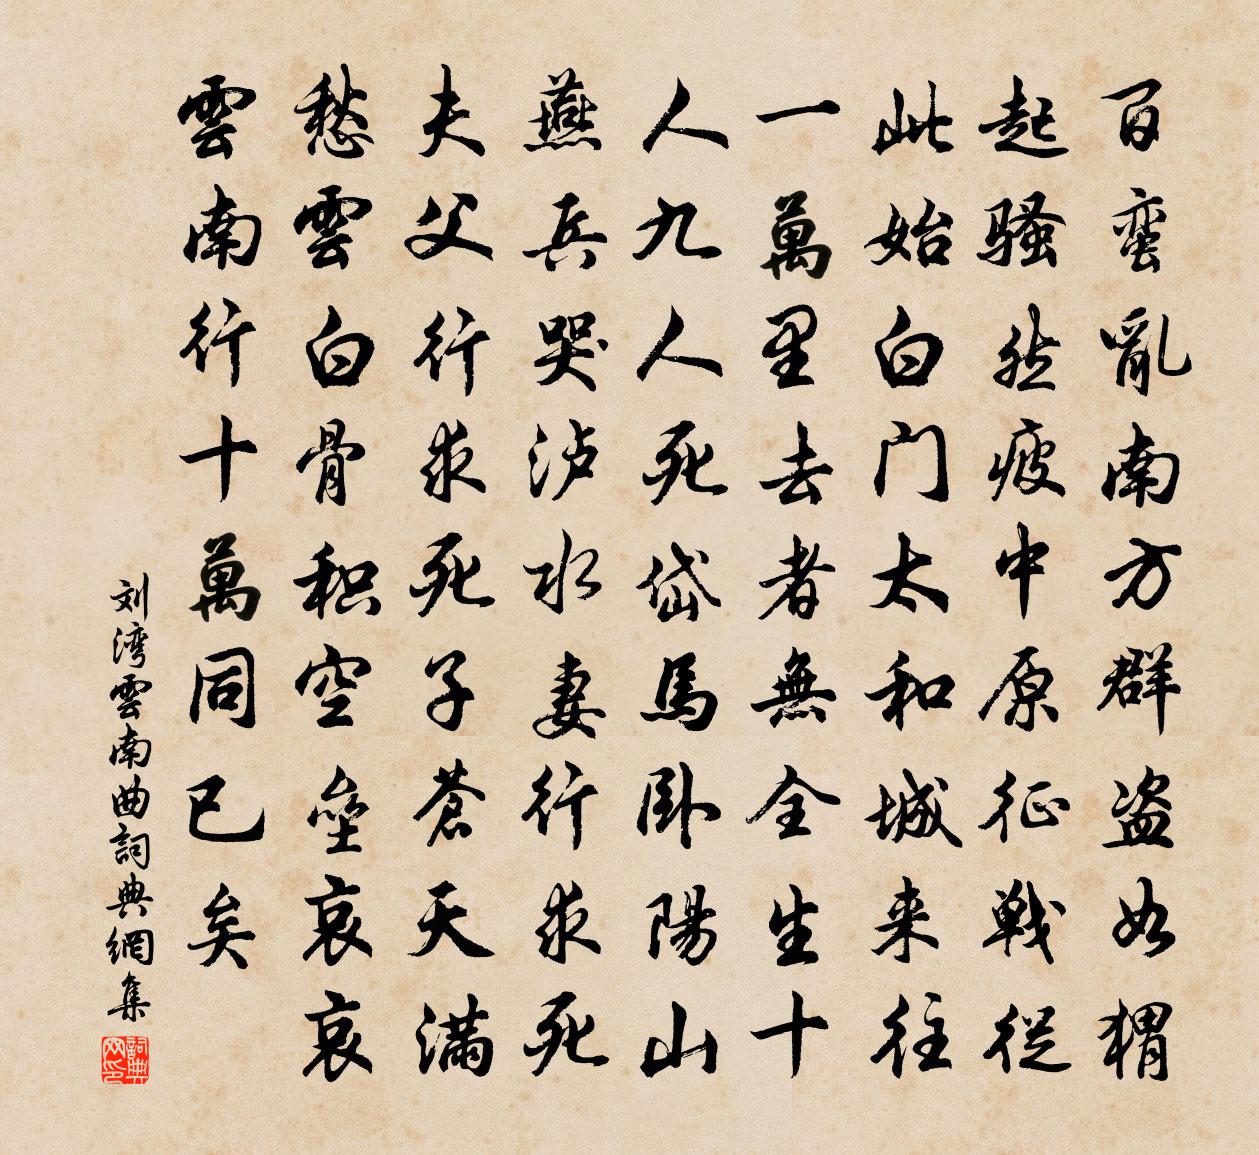 百蛮亂南方群盗如猬
起骚然疲中原征戦従
此始白门太和城来往
一萬里去者無全生十
人九人死岱馬卧陽山
燕兵哭泸水妻行求死
夫父行求死子蒼天满
愁雲白骨积空壘哀哀
雲南行十萬同已矣
刘湾雲南曲詞典網集
詞典网印